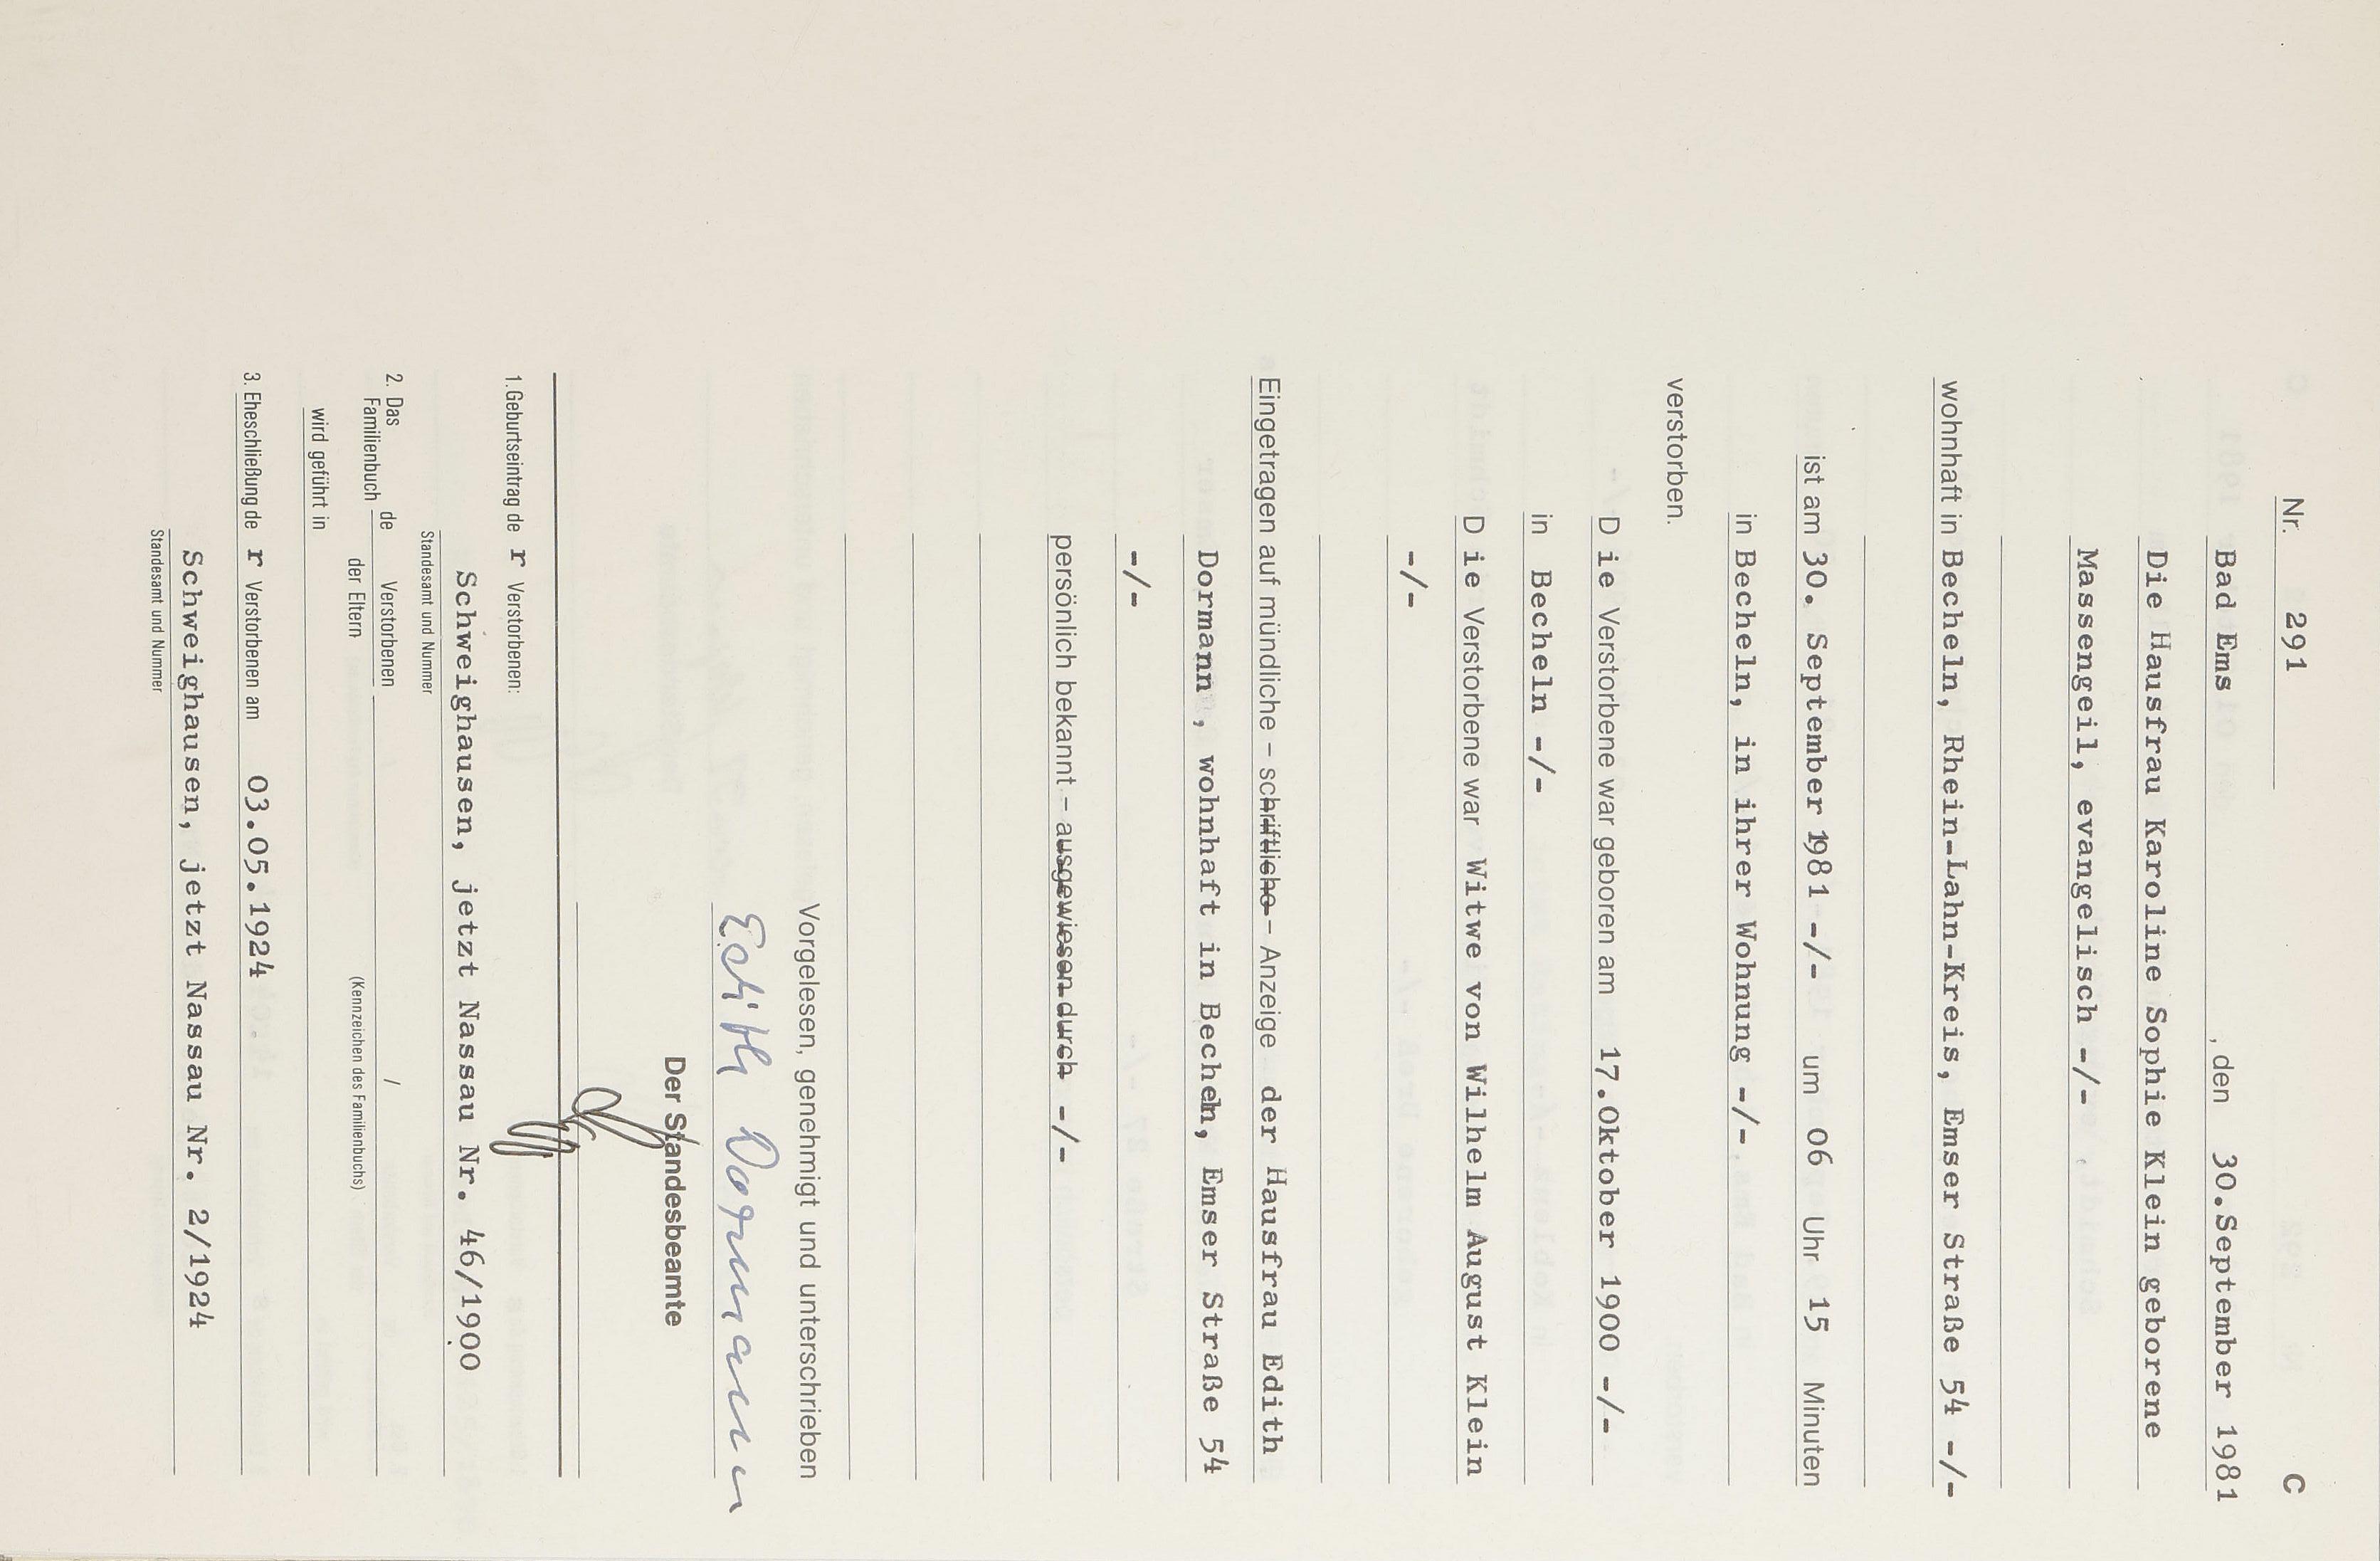 C
Nr. 291
Bad Ems, den 30.September 1981
Die Hausfrau Karoline Sophie Klein geborene
Massengeil, evangelisch -/-
wohnhaft in Becheln, Rhein-Lahn-Kreis, Emser Straße 54 -/-
ist am 30. September 1981 -/- um 06 Uhr 15 Minuten
in Becheln, in ihrer Wohnung -/-
verstorben.
D ie Verstorbene war geboren am 17.Oktober 1900 -/-
in Becheln -/-
D ie Verstorbene war Witwe von Wilhelm August Klein
-/-
Eingetragen auf mündliche – schriftliche – Anzeige der Hausfrau Edith
Dormann, wohnhaft in Becheln, Emser Straße 54
-/-
persönlich bekannt – ausgewiesen durch -/-
Vorgelesen, genehmigt und unterschrieben
Edith Dormann
Der Standesbeamte
1.Geburtseintrag de r Verstorbenen:
Schweighausen, jetzt Nassau Nr. 46/1900
Standesamt und Nummer
2. Das Familienbuch de Verstorbenen /
der Eltern (Kennzeichen des Familienbuchs)
wird geführt in
3. Eheschließung de r Verstorbenen am 03.05.1924
Schweighausen, jetzt Nassau Nr. 2/1924
Standesamt und Nummer